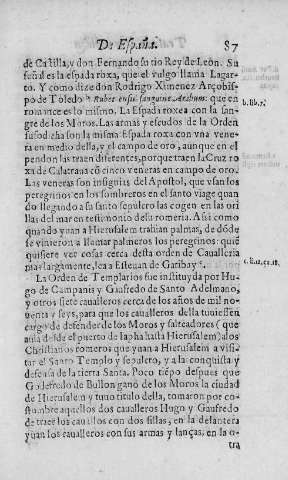 De España. 87
de Castilla, y don Fernando su tio Rey de León. Su
señal es la espada roxa, que el vulgo llama Lagar-
to. Y como dize don Rodrigo Ximenez Arçobis-
po de Toledo Rubet ensis sanguine Arabum: que en b. lib. 7.
romance es lo mismo. La Espada roxea con la san-
gre de los Moros. Las armas y escudos de la Orden
susodicha son la misma Espada roxa con vna vene-
ra en medio della, y el campo de oro, aunque en el
pendon las traen diferentes, porque traen la Cruz ro
xa de Calatraua cõ cinco veneras en campo de oro.
Las veneras son insignias del Apostol, que vsan los
peregrinos en los sombreros en el santo viage quan
do llegando a su santo sepulcro las cogen en las ori
llas del mar en testimonio de su romeria. Assi como
quando yuan a Hierusalem trahian palmas, de dõde
se vinieron a llamar palmeros los peregrinos: quiē
quisiere ver cosas cerca desta orden de Caualleria
mas largamente, lea a Esteuan de Garibay.
La Orden de Templarios fue instituyda por Hu-
go de Campanis y Gaufredo de Santo Adelmano,
y otros siete caualleros cerca de los años de mil no-
uenta y seys, para que los caualleros della tuuiessen
cargo de defender de los Moros y salteadores (que
auia desde el puerto de Iapha hasta Hierusalem) a los
Christianos romeros que yuan a Hierusalem a visi-
tar el Santo Templo y sepulcro, y a la conquista y
defensa de la tierra Santa. Poco tiẽpo despues que
Godefredo de Bullon ganó de los Moros la ciudad
de Hierusalem y tuuo titulo della, tomaron por co-
stumbre aquellos dos caualleros Hugo y Gaufredo
de traer los cauallos con dos sillas, en la delantera
yuan los caualleros con sus armas y lanças, en la o-
tra